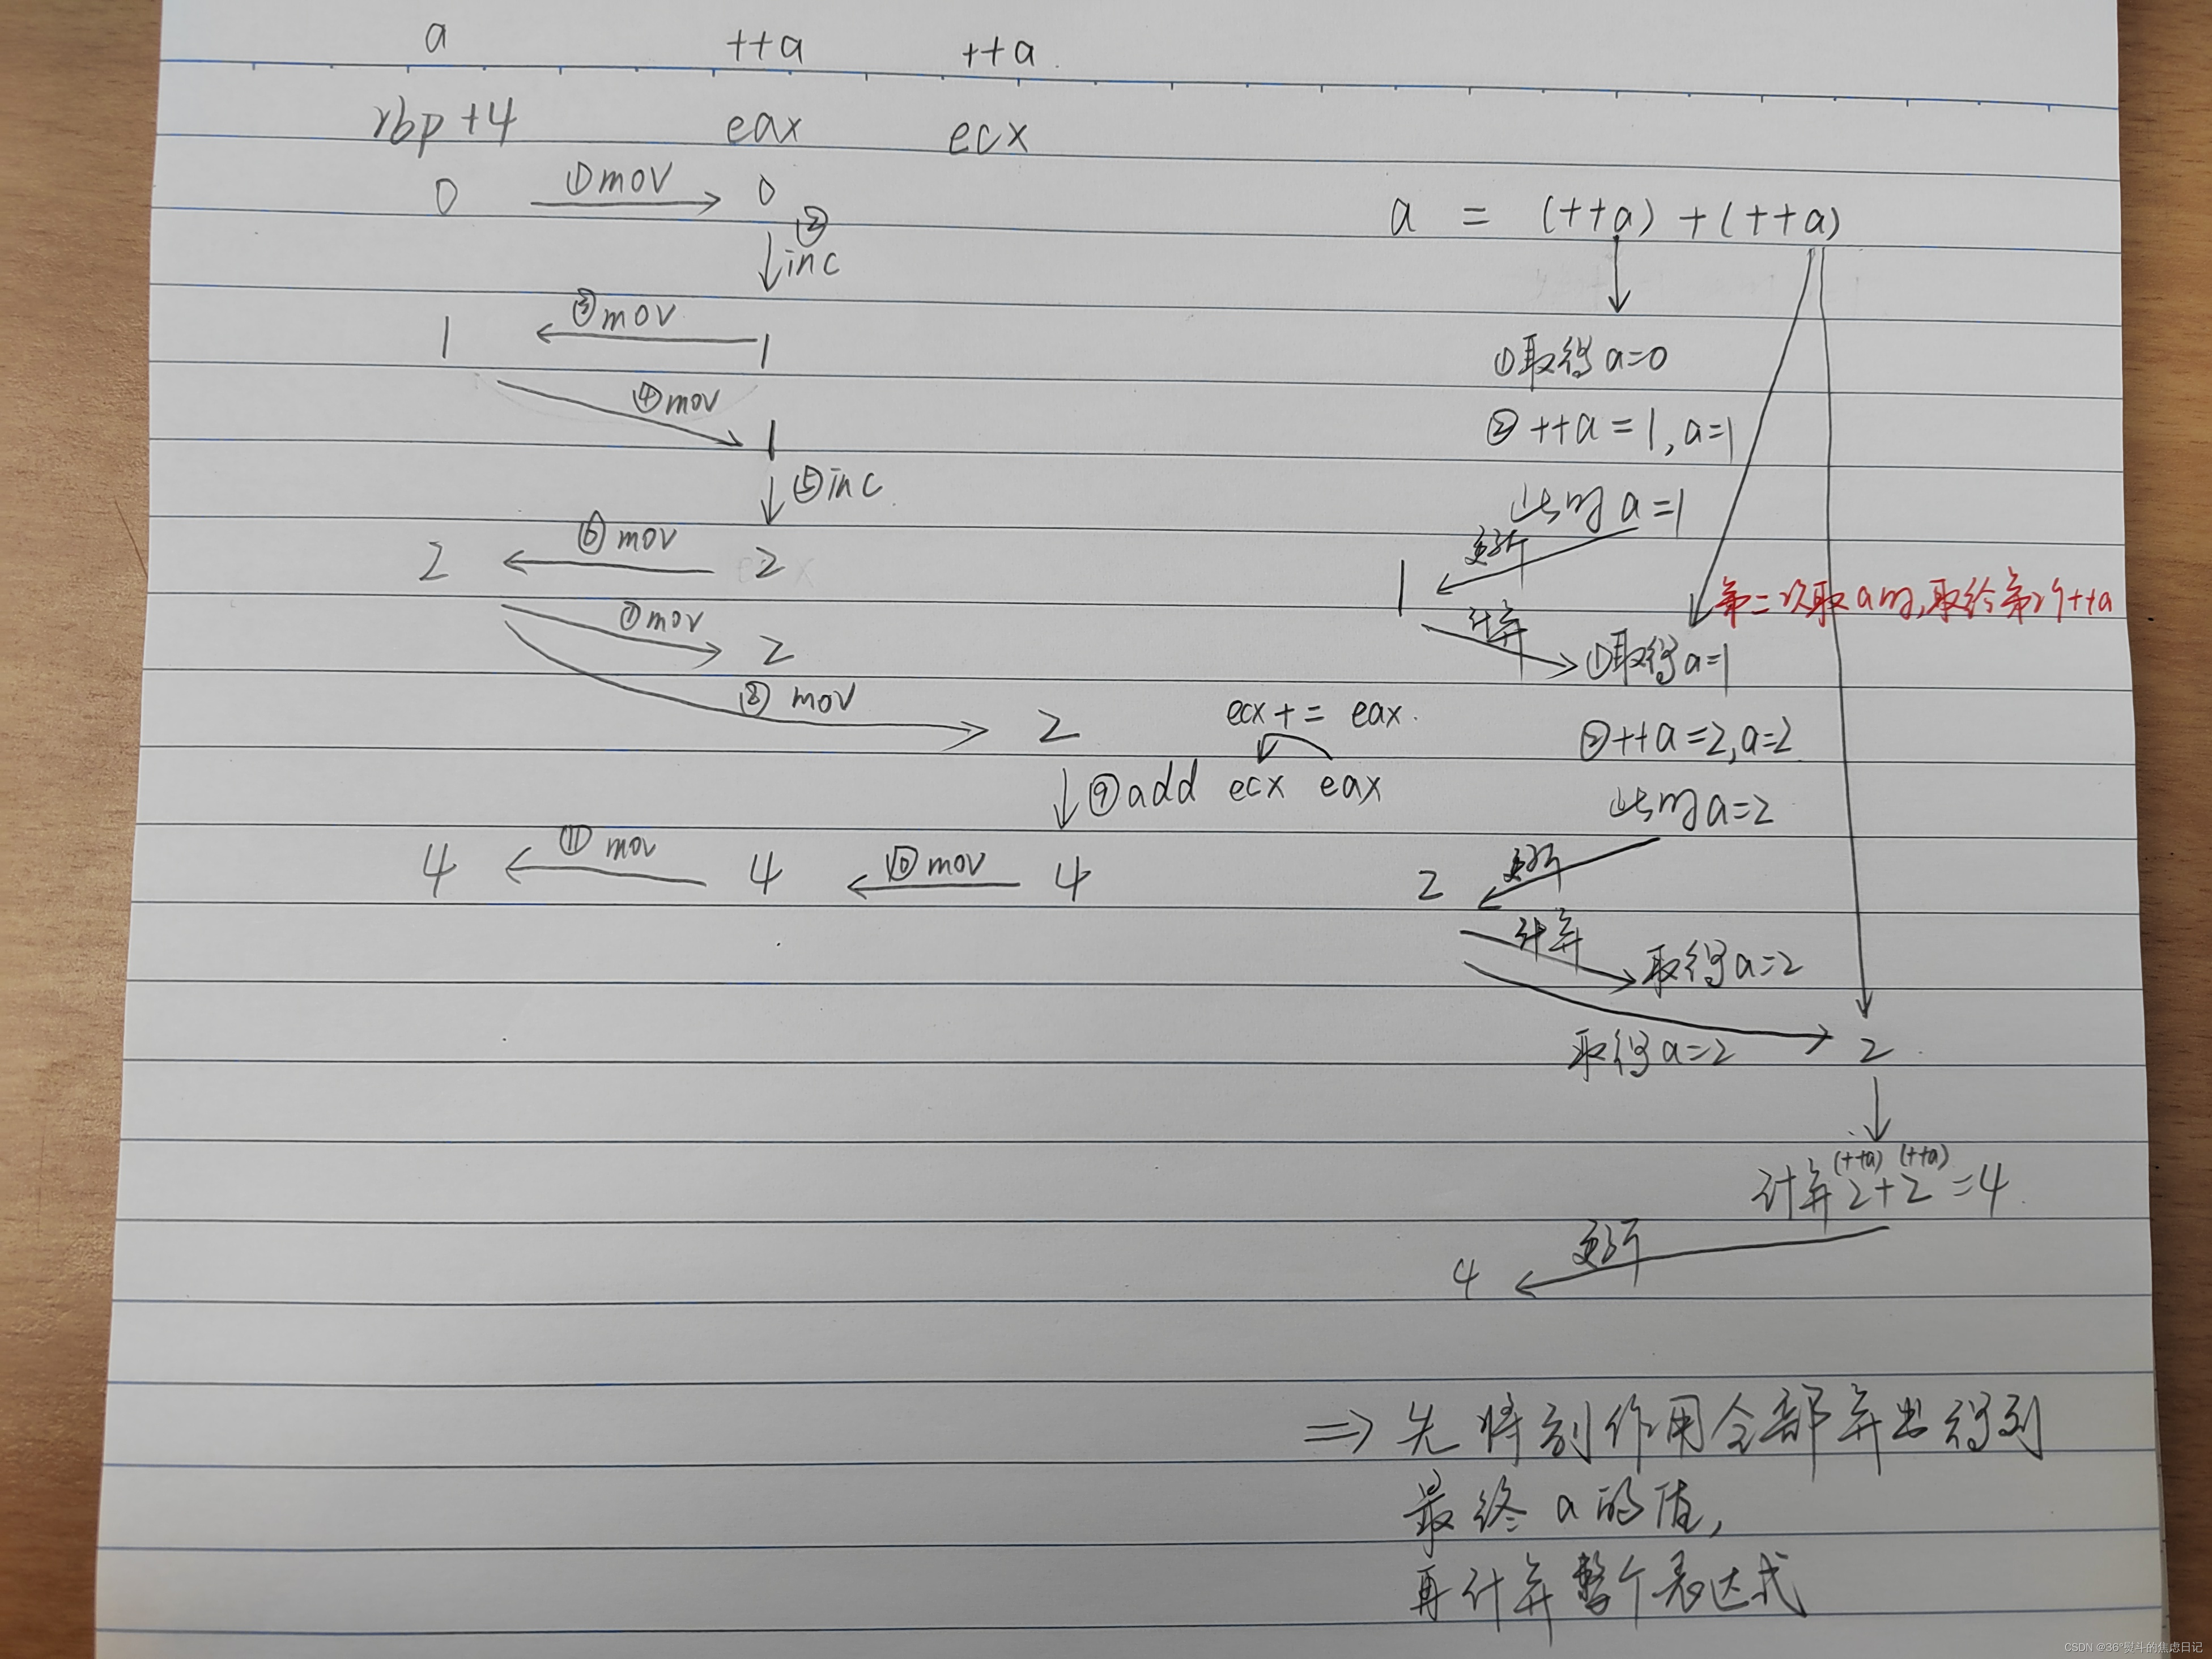 a ++a ++a
rbp+4 eax ecx
0 ①mov 0
②
inc
1 ③mov 1
④mov
1
⑤inc
2 ⑥mov 2
⑦mov 2
⑧ mov 2
⑨add ecx eax
ecx += eax
4 ⑪ mov 4 ⑩mov 4
a = (++a)+(++a)
①取得a=0
②++a=1,a=1
此时a=1
更新
1
计算
第二次取a时,取给第2个++a
①取得a=1
②++a=2,a=2
此时a=2
更新
2
计算
取得a=2
取得a=2 2
(++a) (++a)
计算2+2=4
更新
4
⇒先将副作用全部算出得到
最终a的值,
再计算整个表达式
CSDN @36°熨斗的焦虑日记